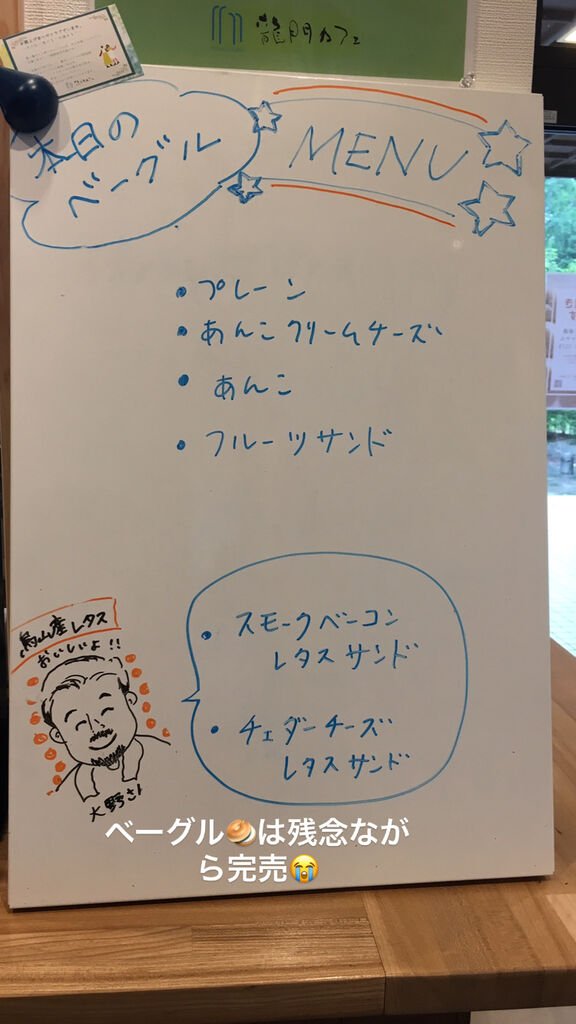 龍門カフェ
本日の
ベーグル
MENU
・プレーン
・あんこクリームチーズ
・あんこ
・フルーツサンド
・スモークベーコン
レタスサンド
・チェダーチーズ
レタスサンド
烏山産レタス
おいしいよ!!
大野さん
ベーグル🥯は残念なが
ら完売😭